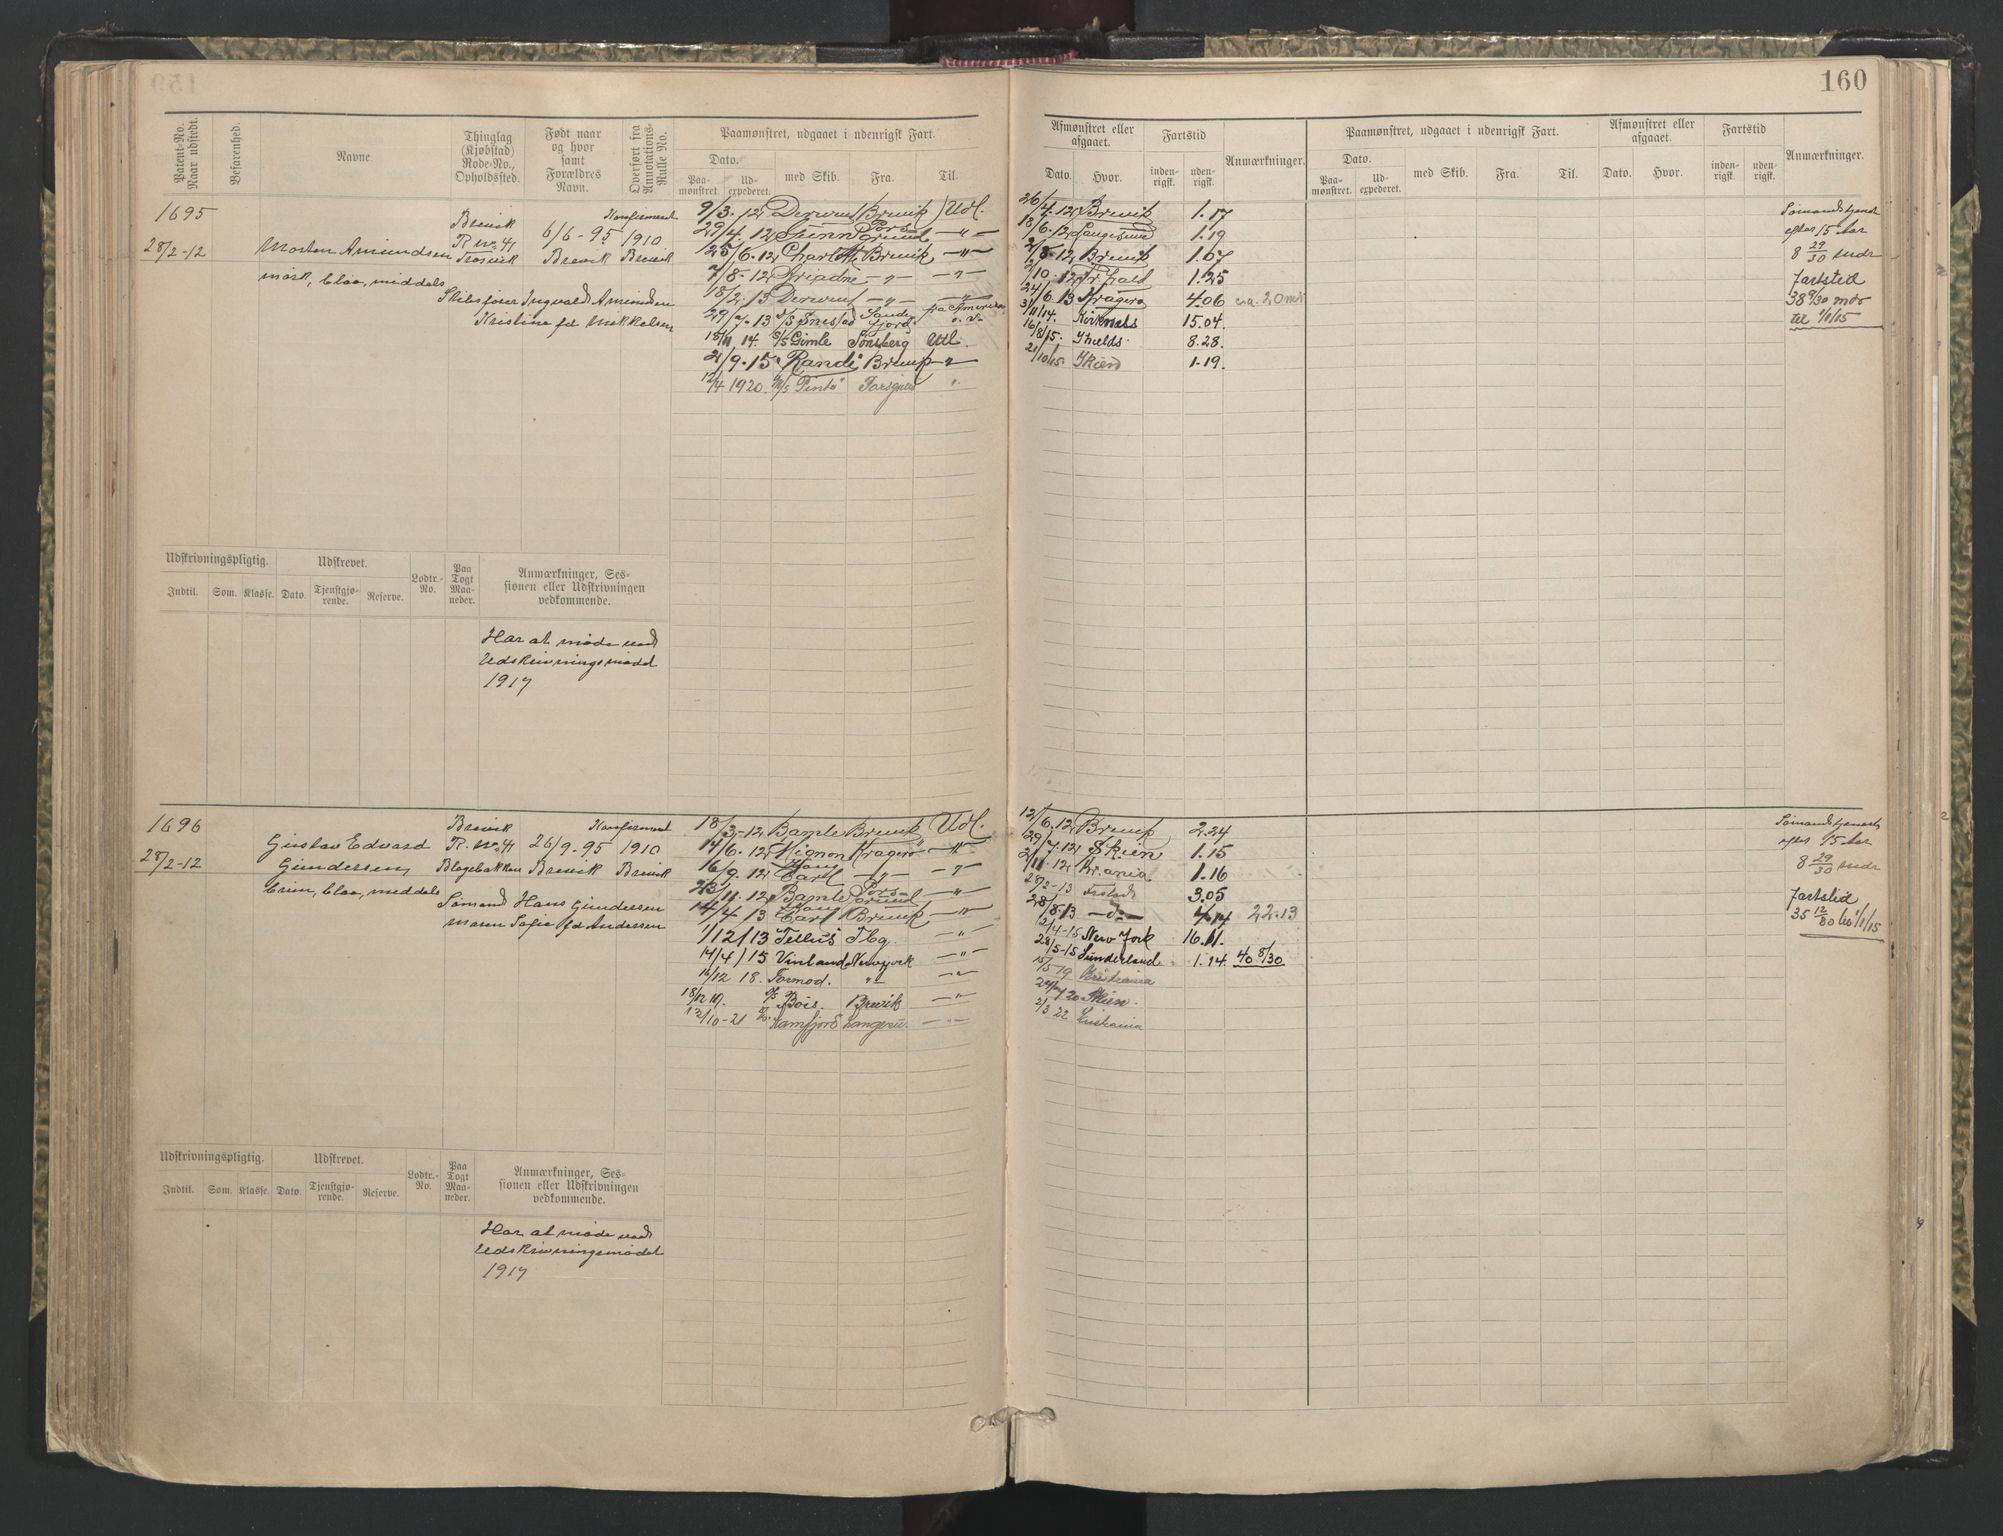 160
Patent-No. Naar udstedt.
Befarenhed.
Navne
Thinglag (Kjøbstad) Rode-No., Opholdssted.
Født naar og hvor samt Forældres Navn.
Overført fra Annotations-Rulle No.
Paamønstret, udgaaet i udenrigsk Fart.
Dato.
Paamønstret.
Udexpederet.
med Skib.
Fra.
Til.
Afmønstret eller afgaaet.
Dato.
Hvor.
Fartstid
indenrigsk.
udenrigsk.
Anmærkninger.
Paamønstret, udgaaet i udenrigsk Fart.
Dato.
Paamønstret.
Udexpederet.
med Skib.
Fra.
Til.
Afmønstret eller afgaaet.
Dato.
Hvor.
Fartstid
indenrigsk.
udenrigsk.
Anmærkninger.
1695
28/2-12
Morten Amundsen
mørk, blaa, middels
Brevik
R. No 41
Trosvik
6/6-95
Brevik
Konfirmert
1910
Brevik
Skibsfører Ingvald Amundsen
Kristine fd Mikkelsen
9/3.12 Derwent Brevik Udl. 26/4.12 Brevik 1.17
29/4.12 Gunn Porsgrund -"- 18/6.12 Langesund 1.19
25/6.12 Charlotte Brevik -"- 2/8.12 Brevik 1.07
7/8.12 Ariadne -"- -"- 2/10.12 Fr.hald 1.25
18/2.13 Derwent -"- -"- 24/6.13 Kragerø 4.06 cra. 20 mdr
29/7-13 S/S Sandefjord fra Amerika 3/11/14. Kirknæs 15.04.
18/11 14. S/S Gimle Tønsberg Utl. 16/8/15. Shields 8.28.
2/9.15 Randi Brevik -"- 21/10/15 Skien 1.19.
12/4 1920. M/S Pinto Porsgrund "
Sømandstjeneste
efter 15 Aar
8 29/30 mdr
Fartstid
38 9/30 mdr
til 1/1/15
Udskrivningspligtig.
Indtil. Som. Klasse.
Udskrevet.
Dato. Tjenstgjørende. Reserve.
Lodtr.-No.
Paa Togt Maaneder.
Anmærkninger, Sessionen eller Udskrivningen vedkommende.
Har at møde ved
Udskrivningsmødet
1917
1696
28/2-12
Gustav Edvard
Gundersen
brun, blaa, middels
Brevik
R. No 41
Blegebakken
26/9-95
Brevik
Konfirmert
1910
Brevik
Sømand Hans Gundersen
Maren Sofie fd Andersen
18/3-12 Bamle Brevik Udl. 12/6.12 Brevik 2.24
14/6.12 Mignon Kragerø -"- 29/7.12 Skien 1.15
16/9.12 Hans Carl -"- -"- 2/11.12 Kr.ania 1.16
23/11.12 Bamle Porsgrund -"- 28/2-13 Frstad 3.05
14/4 13 Hans Carl Brevik -"- 28/8.13 -do- 4.14 22.13
1/12/13 Tellus Fbg. -"- 2/4-15 New York 16.11.
14/4/15 Vinland New york -"- 28/5-15 Sunderland 1.14. 40 8/30
16/12 18. Tormod. " -"- 15/5 19 Kristiania
18/12 19. S/S Bois. Brevik -"- Skien.
12/10-21 Ramfjord Langesu. -"- 2/3 22 Kristiania
Sømandstjeneste
efter 15 Aar
8 29/30 mdr
Fartstid
35 12/30 til 1/1/15
Udskrivningspligtig.
Indtil. Som. Klasse.
Udskrevet.
Dato. Tjenstgjørende. Reserve.
Lodtr.-No.
Paa Togt Maaneder.
Anmærkninger, Sessionen eller Udskrivningen vedkommende.
Har at møde ved
Udskrivningsmødet
1917